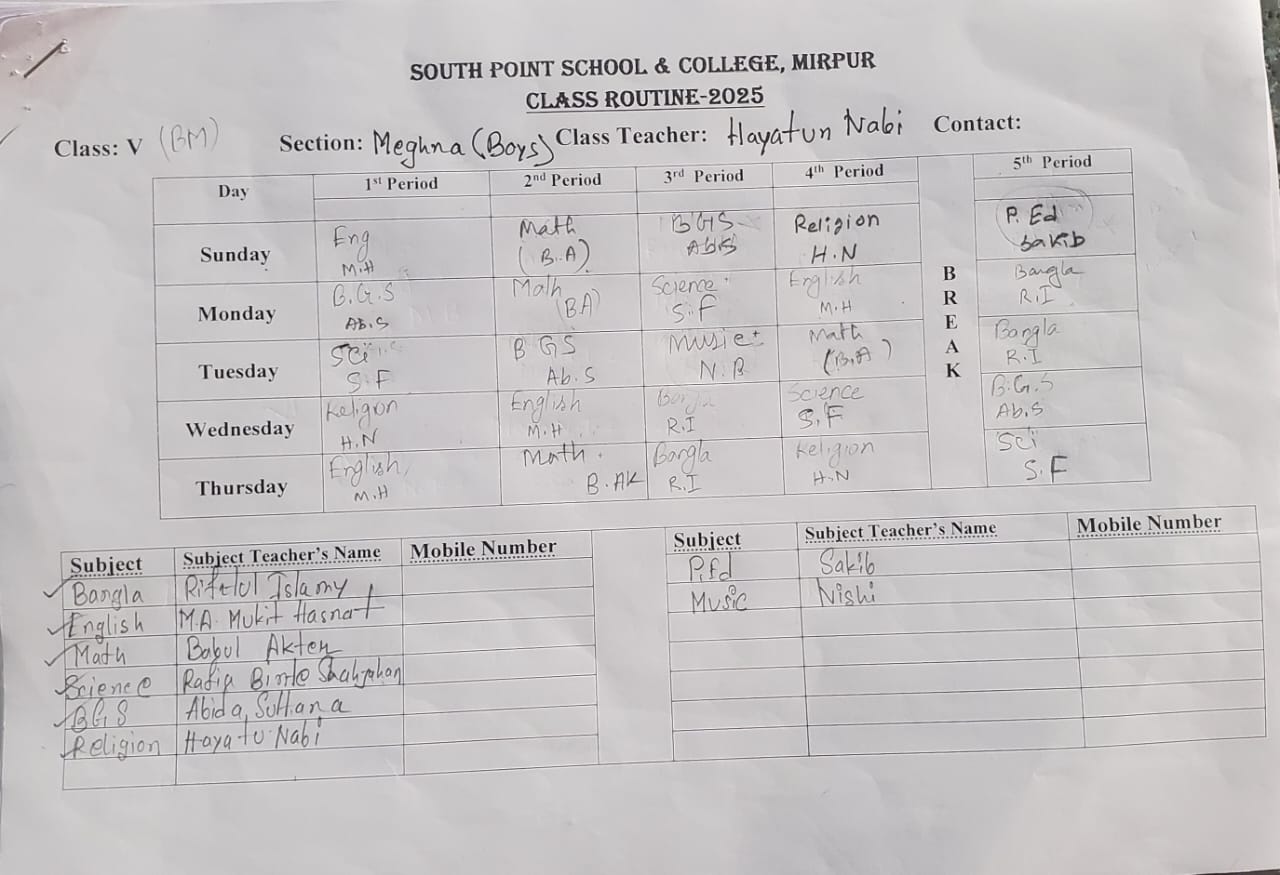 SOUTH POINT SCHOOL & COLLEGE, MIRPUR
CLASS ROUTINE-2025
Class: V (BM) Section: Meghna (Boys) Class Teacher: Hayatun Nabi Contact:
Day 1st Period 2nd Period 3rd Period 4th Period 5th Period
Sunday Eng Math BGS Religion P. Ed
M.H (B.A) Ab.S H.N Sakib
Monday B.G.S Math Science English Bangla
Ab.S (BA) S.F M.H R.I
Tuesday Sci BGS Music Math Bangla
S.F Ab.S N.B (B.A) R.I
Wednesday Religion English Bangla Science B.G.S
H.N M.H R.I S.F Ab.S
Thursday English Math Bangla Religion Sci
M.H B.AK R.I H.N S.F
BREAK
Subject Subject Teacher's Name Mobile Number
Bangla Islamy
English M.A. Mukit Hasnat
Math Babul Akter
Science Shahjahan
BGS Abida Sultana
Religion Hayatu Nabi
Subject Subject Teacher's Name Mobile Number
P.Ed Sakib
Music Nishi